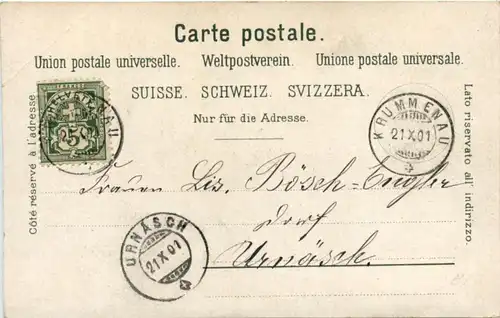 Carte postale.
Union postale universelle. Weltpostverein. Unione postale universale.
SUISSE. SCHWEIZ. SVIZZERA.
Nur für die Adresse.
Côté réservé à l'adresse
Lato riservato all' indirizzo.
KRUMMENAU
21 X 01
5
Frauen Lis. Bösch-Engler
Dorf
Urnäsch.
URNÄSCH
21 X 01